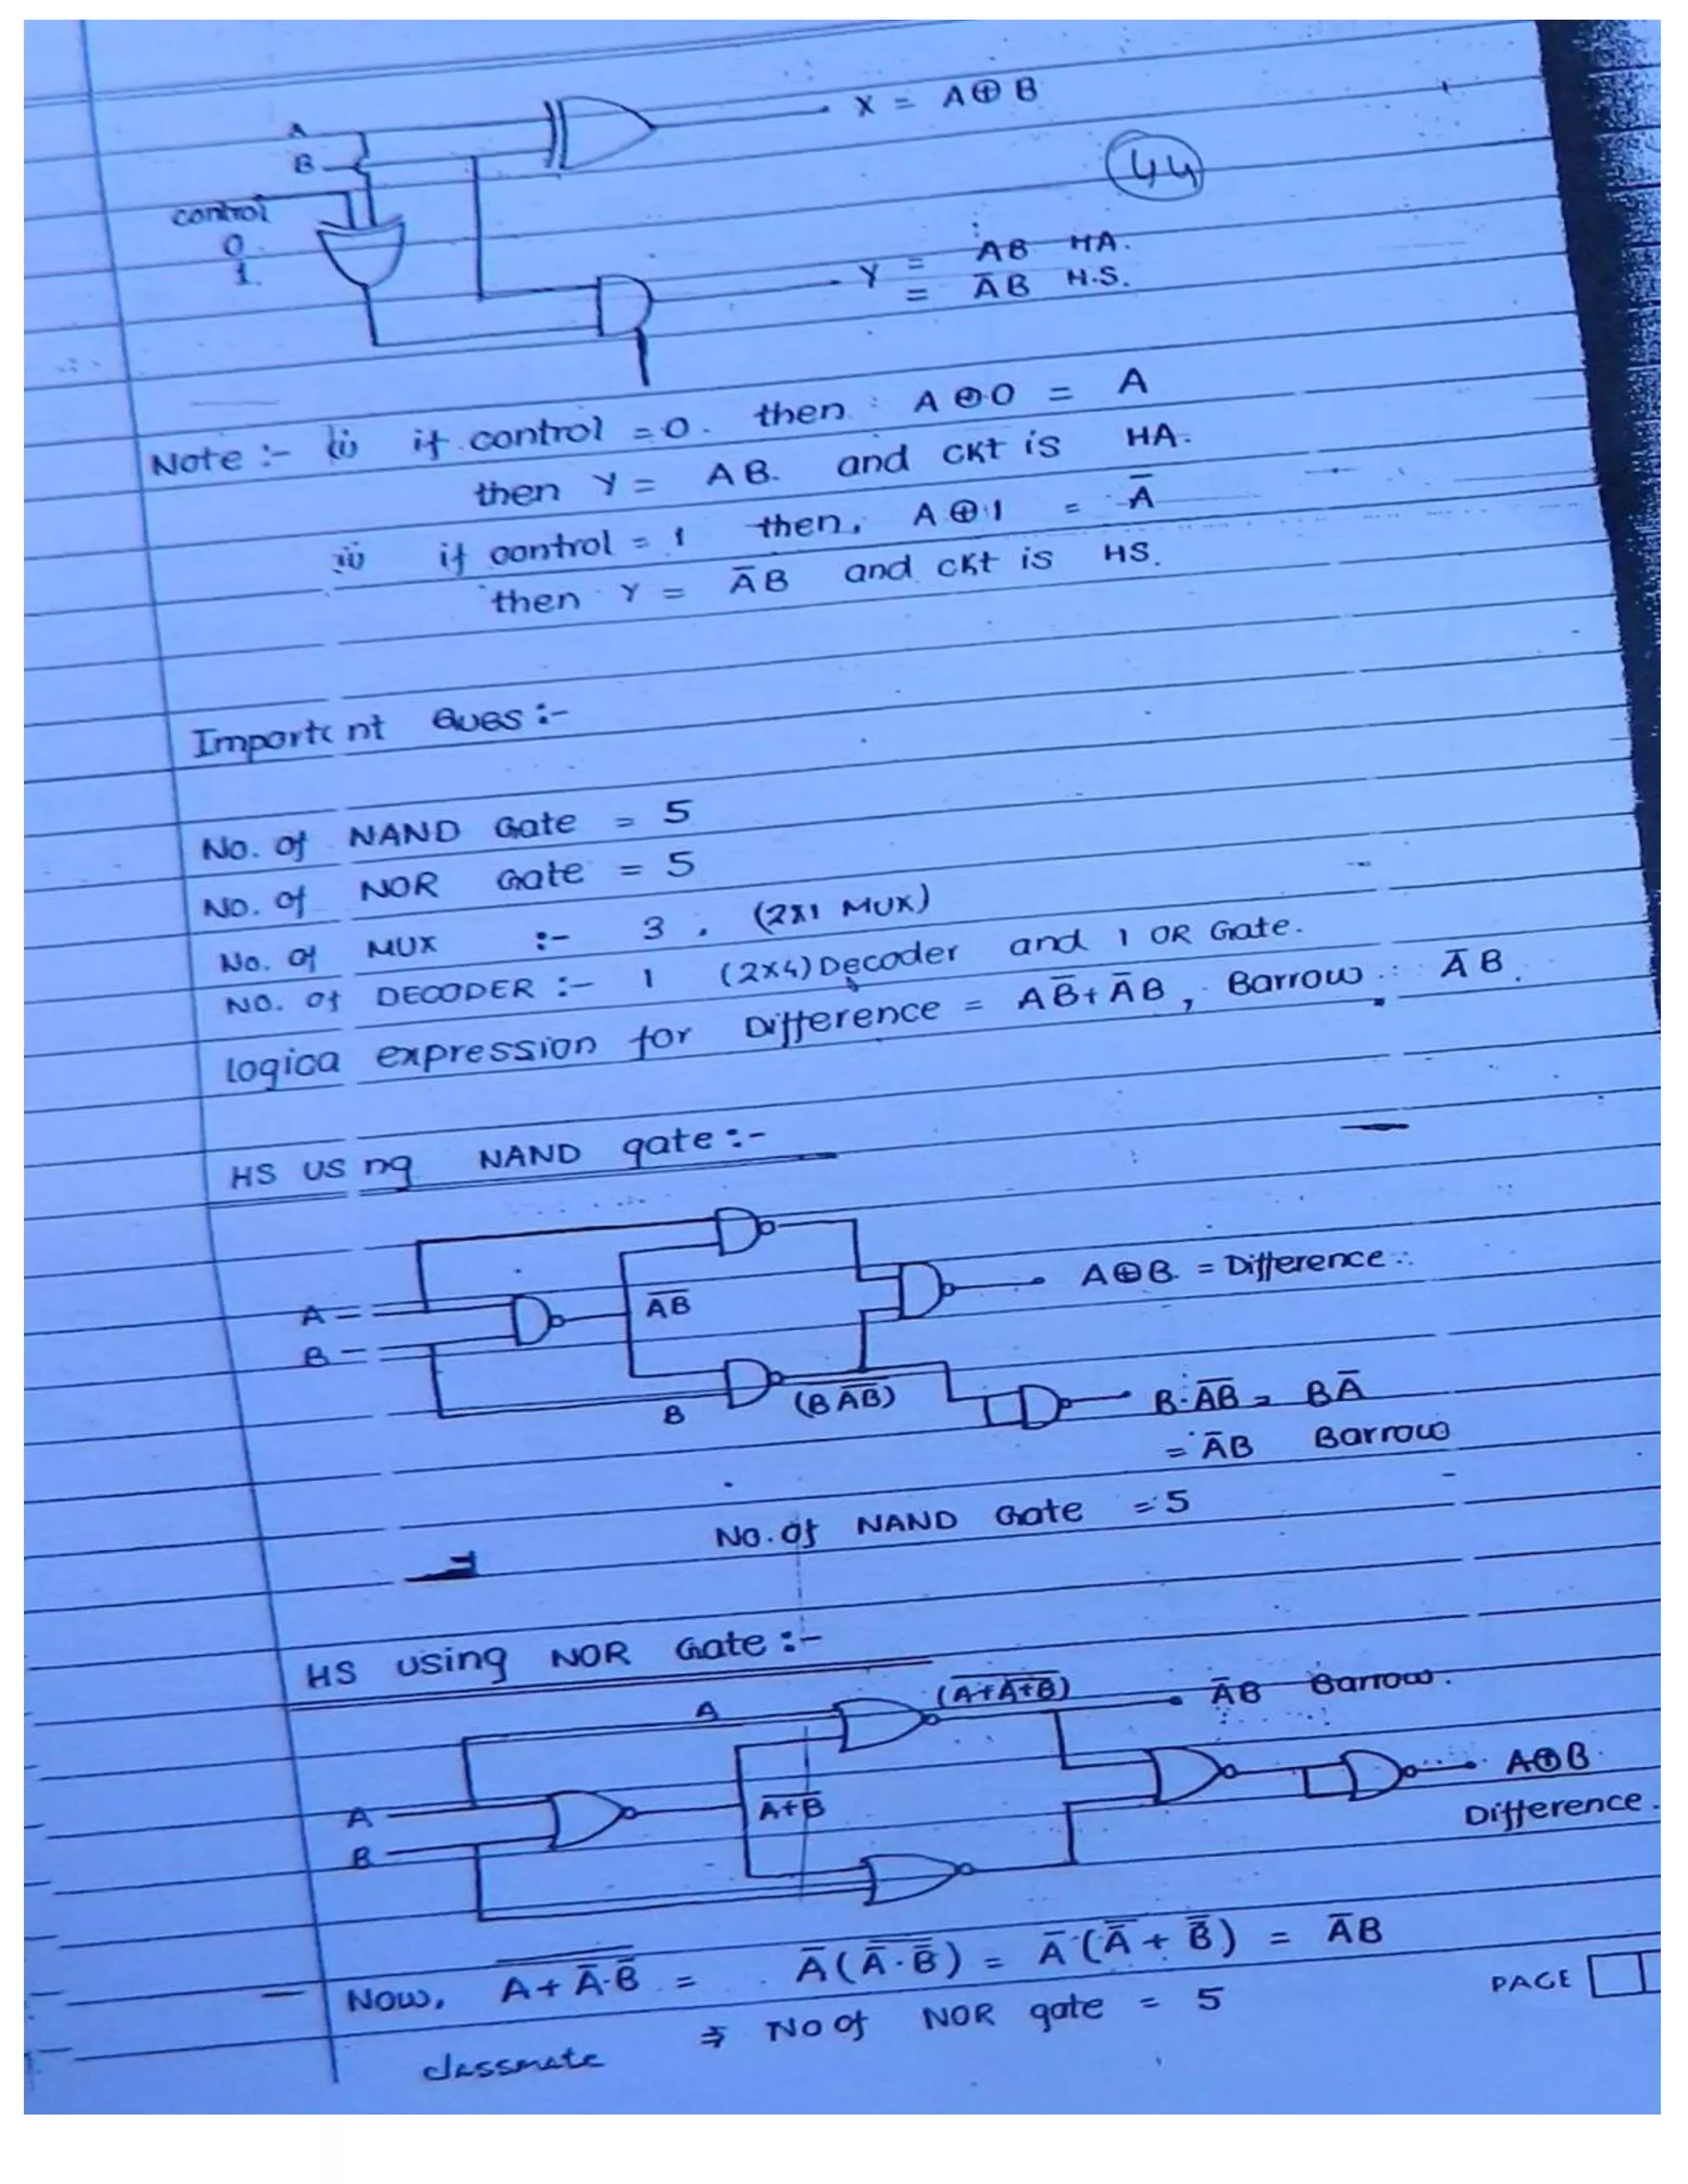 A
B
control
0
1.
X = A⊕B
44
Y = AB HA.
= A̅B H.S.
Note :- (i) if control = 0. then : A⊕0 = A
then Y = AB. and ckt is HA.
(ii) if control = 1 then, A⊕1 = A̅
then Y = A̅B and ckt is HS.
Importent Ques :-
No. of NAND Gate = 5
No. of NOR Gate = 5
No. of MUX :- 3 . (2x1 MUX)
No. of DECODER :- 1 (2x4) Decoder and 1 OR Gate.
logica expression for Difference = AB̅ + A̅B , Barrow : A̅B.
HS using NAND gate :-
A
B
A̅B̅
B
(B A̅B̅)
A⊕B = Difference
B·A̅B̅ = BA̅
= A̅B Barrow
No. of NAND Gate = 5
HS using NOR Gate :-
A
(A+A+B)
A̅B Barrow.
A
B
A+B
A⊕B
Difference.
Now, A+A̅·B̅ = A̅(A̅·B̅) = A̅(A̿+B̿) = A̅B
⇒ No of NOR gate = 5
PAGE
classmate